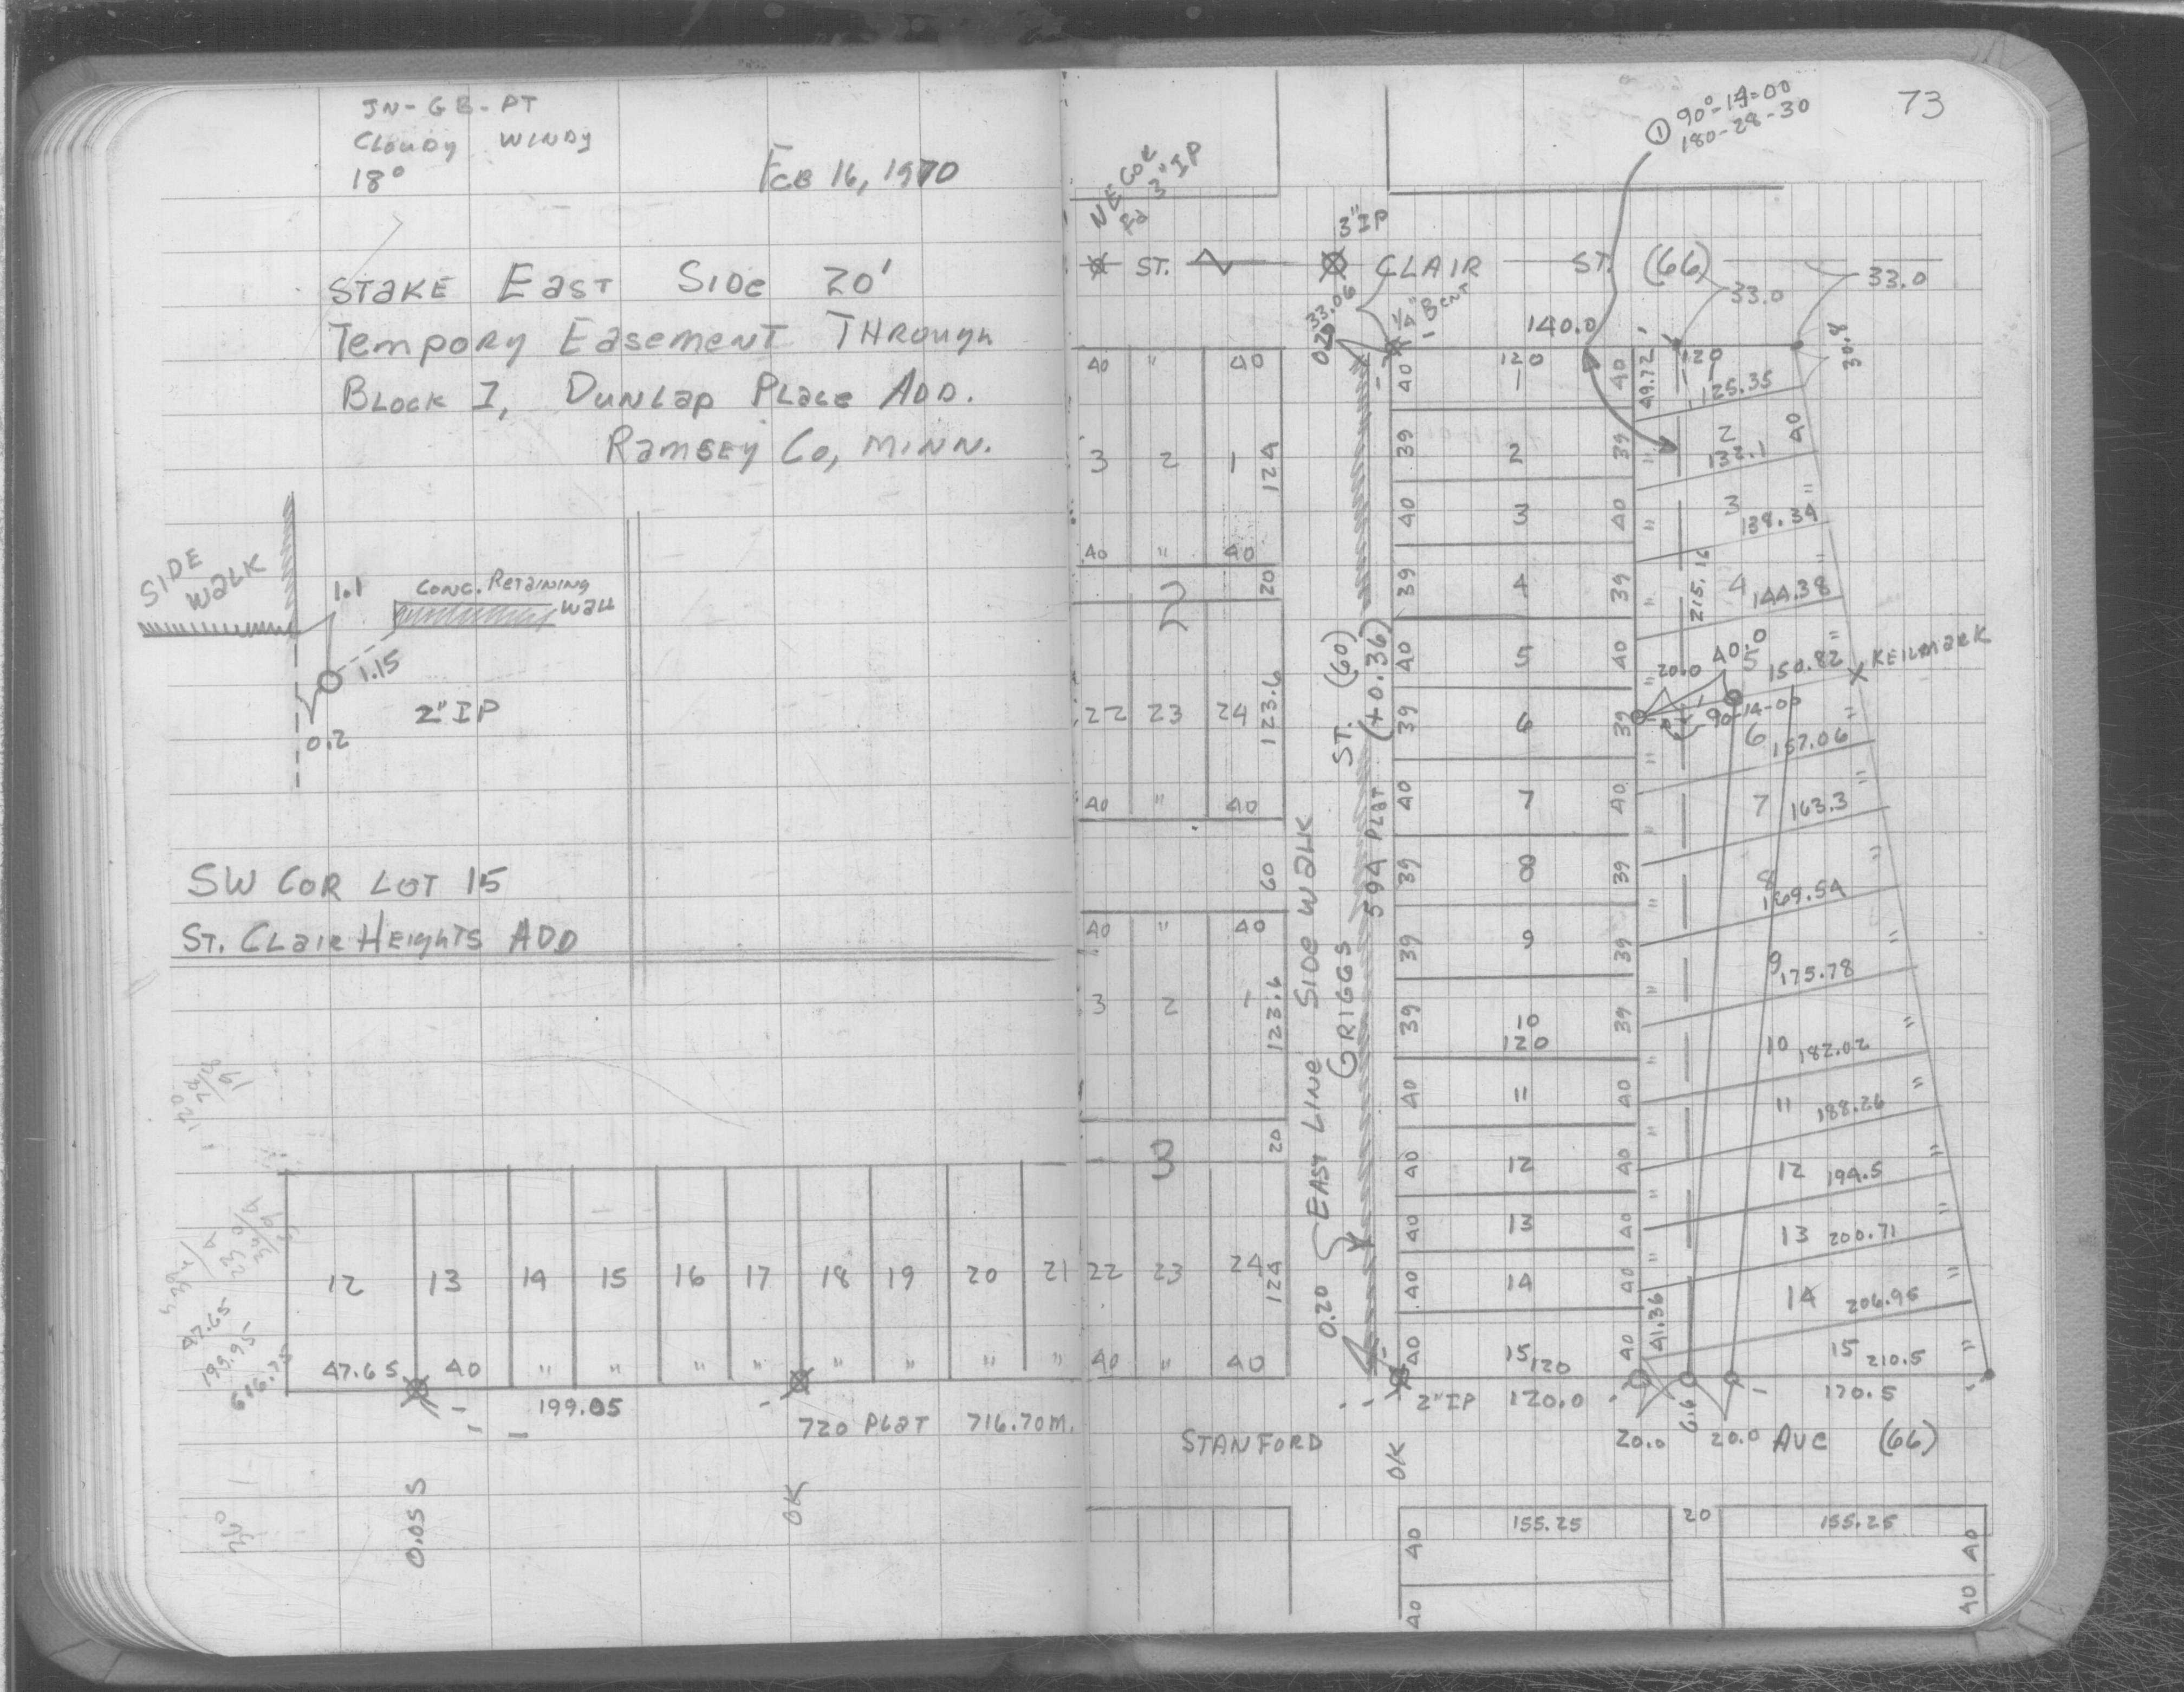 JN-GB-PT
Cloudy Windy
18°
Feb 16, 1970
Stake East Side 20'
Tempory Easement Through
Block 1, Dunlap Place Add.
Ramsey Co, Minn.
SIDE WALK
1.1
Conc. Retaining Wall
1.15
2" IP
0.2
SW Cor Lot 15
St. Clair Heights Add
12 13 14 15 16 17 18 19 20 21
47.65 40 " " " " " " " "
199.05
720 Plat 716.70 M.
0.05 S
OK
73
① 90°-14-00
180-28-30
NE Cor
Fd 3" IP
3" IP
ST. CLAIR ST. (66)
33.0
33.0
33.06
0.20
1/4" Bent
140.0
30.8
40 " 40
3 2 1 124
40 " 40
2
20
22 23 24 123.6
40 " 40
60
40 " 40
3 2 1 123.6
3
20
22 23 24 124
40 " 40
0.20 East Line Side Walk
GRIGGS ST. (60)
594 Plat (+0.36)
40 120 1 40 49.72 120 1 125.35
39 2 39 " 2 132.1 40
40 3 40 " 3 138.34 "
39 4 39 " 4 144.38 "
215.16
40 5 40 " 5 150.82 "
X Keilmark
20.0 40.0
90-14-00
39 6 39 6 157.06 "
40 7 40 " 7 163.3 "
39 8 39 " 8 169.54 "
39 9 39 " 9 175.78 "
39 10 120 39 " 10 182.02 "
40 11 40 " 11 188.26 "
40 12 40 " 12 194.5 "
40 13 40 " 13 200.71 "
40 14 40 " 14 206.95 "
40 15 120 40 41.36 15 210.5 "
2" IP 120.0 170.5
6.6
20.0 20.0
STANFORD Ave (66)
OK
40 155.25 20 155.25 40
40 40